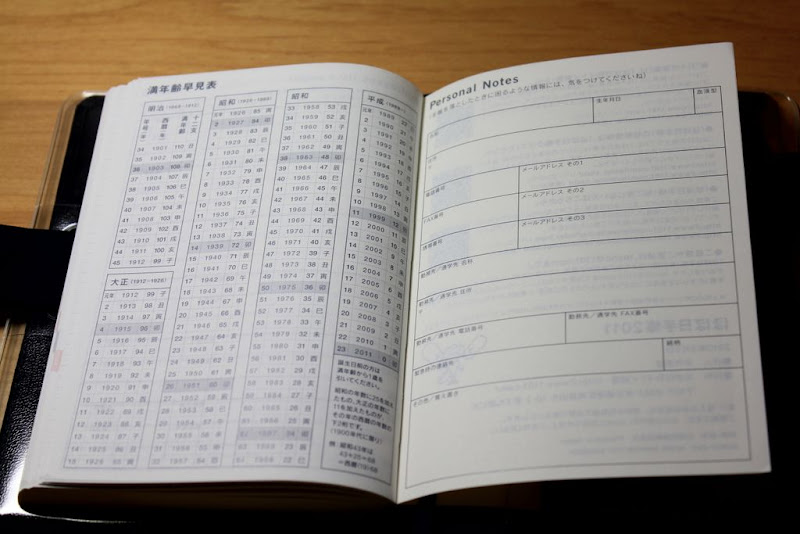 満年齢早見表
明治 (1868〜1912)
年号 西暦 満年齢 十二支
34 1901 110 丑
35 1902 109 寅
36 1903 108 卯
37 1904 107 辰
38 1905 106 巳
39 1906 105 午
40 1907 104 未
41 1908 103 申
42 1909 102 酉
43 1910 101 戌
44 1911 100 亥
45 1912 99 子
大正 (1912〜1926)
元年 1912 99 子
2 1913 98 丑
3 1914 97 寅
4 1915 96 卯
5 1916 95 辰
6 1917 94 巳
7 1918 93 午
8 1919 92 未
9 1920 91 申
10 1921 90 酉
11 1922 89 戌
12 1923 88 亥
13 1924 87 子
14 1925 86 丑
15 1926 85 寅
昭和 (1926〜1989)
元年 1926 85 寅
2 1927 84 卯
3 1928 83 辰
4 1929 82 巳
5 1930 81 午
6 1931 80 未
7 1932 79 申
8 1933 78 酉
9 1934 77 戌
10 1935 76 亥
11 1936 75 子
12 1937 74 丑
13 1938 73 寅
14 1939 72 卯
15 1940 71 辰
16 1941 70 巳
17 1942 69 午
18 1943 68 未
19 1944 67 申
20 1945 66 酉
21 1946 65 戌
22 1947 64 亥
23 1948 63 子
24 1949 62 丑
25 1950 61 寅
26 1951 60 卯
27 1952 59 辰
28 1953 58 巳
29 1954 57 午
30 1955 56 未
31 1956 55 申
32 1957 54 酉
昭和
33 1958 53 戌
34 1959 52 亥
35 1960 51 子
36 1961 50 丑
37 1962 49 寅
38 1963 48 卯
39 1964 47 辰
40 1965 46 巳
41 1966 45 午
42 1967 44 未
43 1968 43 申
44 1969 42 酉
45 1970 41 戌
46 1971 40 亥
47 1972 39 子
48 1973 38 丑
49 1974 37 寅
50 1975 36 卯
51 1976 35 辰
52 1977 34 巳
53 1978 33 午
54 1979 32 未
55 1980 31 申
56 1981 30 酉
57 1982 29 戌
58 1983 28 亥
59 1984 27 子
60 1985 26 丑
61 1986 25 寅
62 1987 24 卯
63 1988 23 辰
64 1989 22 巳
平成 (1989〜
元年 1989 22
2 1990 21
3 1991 20
4 1992 19
5 1993 18
6 1994 17
7 1995 16
8 1996 15
9 1997 14
10 1998 13
11 1999 12
12 2000 11
13 2001 10
14 2002 9
15 2003 8
16 2004 7
17 2005 6
18 2006 5
19 2007 4
20 2008 3
21 2009 2
22 2010 1
23 2011 0 卯
誕生日前の方は
満年齢から1歳を
引いてください。
昭和の年数に25を加え
たもの、大正の年数に
11を加えたものが、
その年の西暦の年数の
下2桁です。
(1900年代に限り)
例 昭和43年は
43+25=68
→西暦(19)68
Personal Notes
(手帳を落としたときに困るような情報には、気をつけてくださいね)
名前
生年月日
血液型
住所
電話番号
メールアドレス その1
メールアドレス その2
FAX番号
メールアドレス その3
携帯番号
勤務先/通学先 名称
勤務先/通学先 住所
〒
勤務先/通学先 電話番号
勤務先/通学先 FAX番号
緊急時の連絡先
続柄
その他/覚え書き